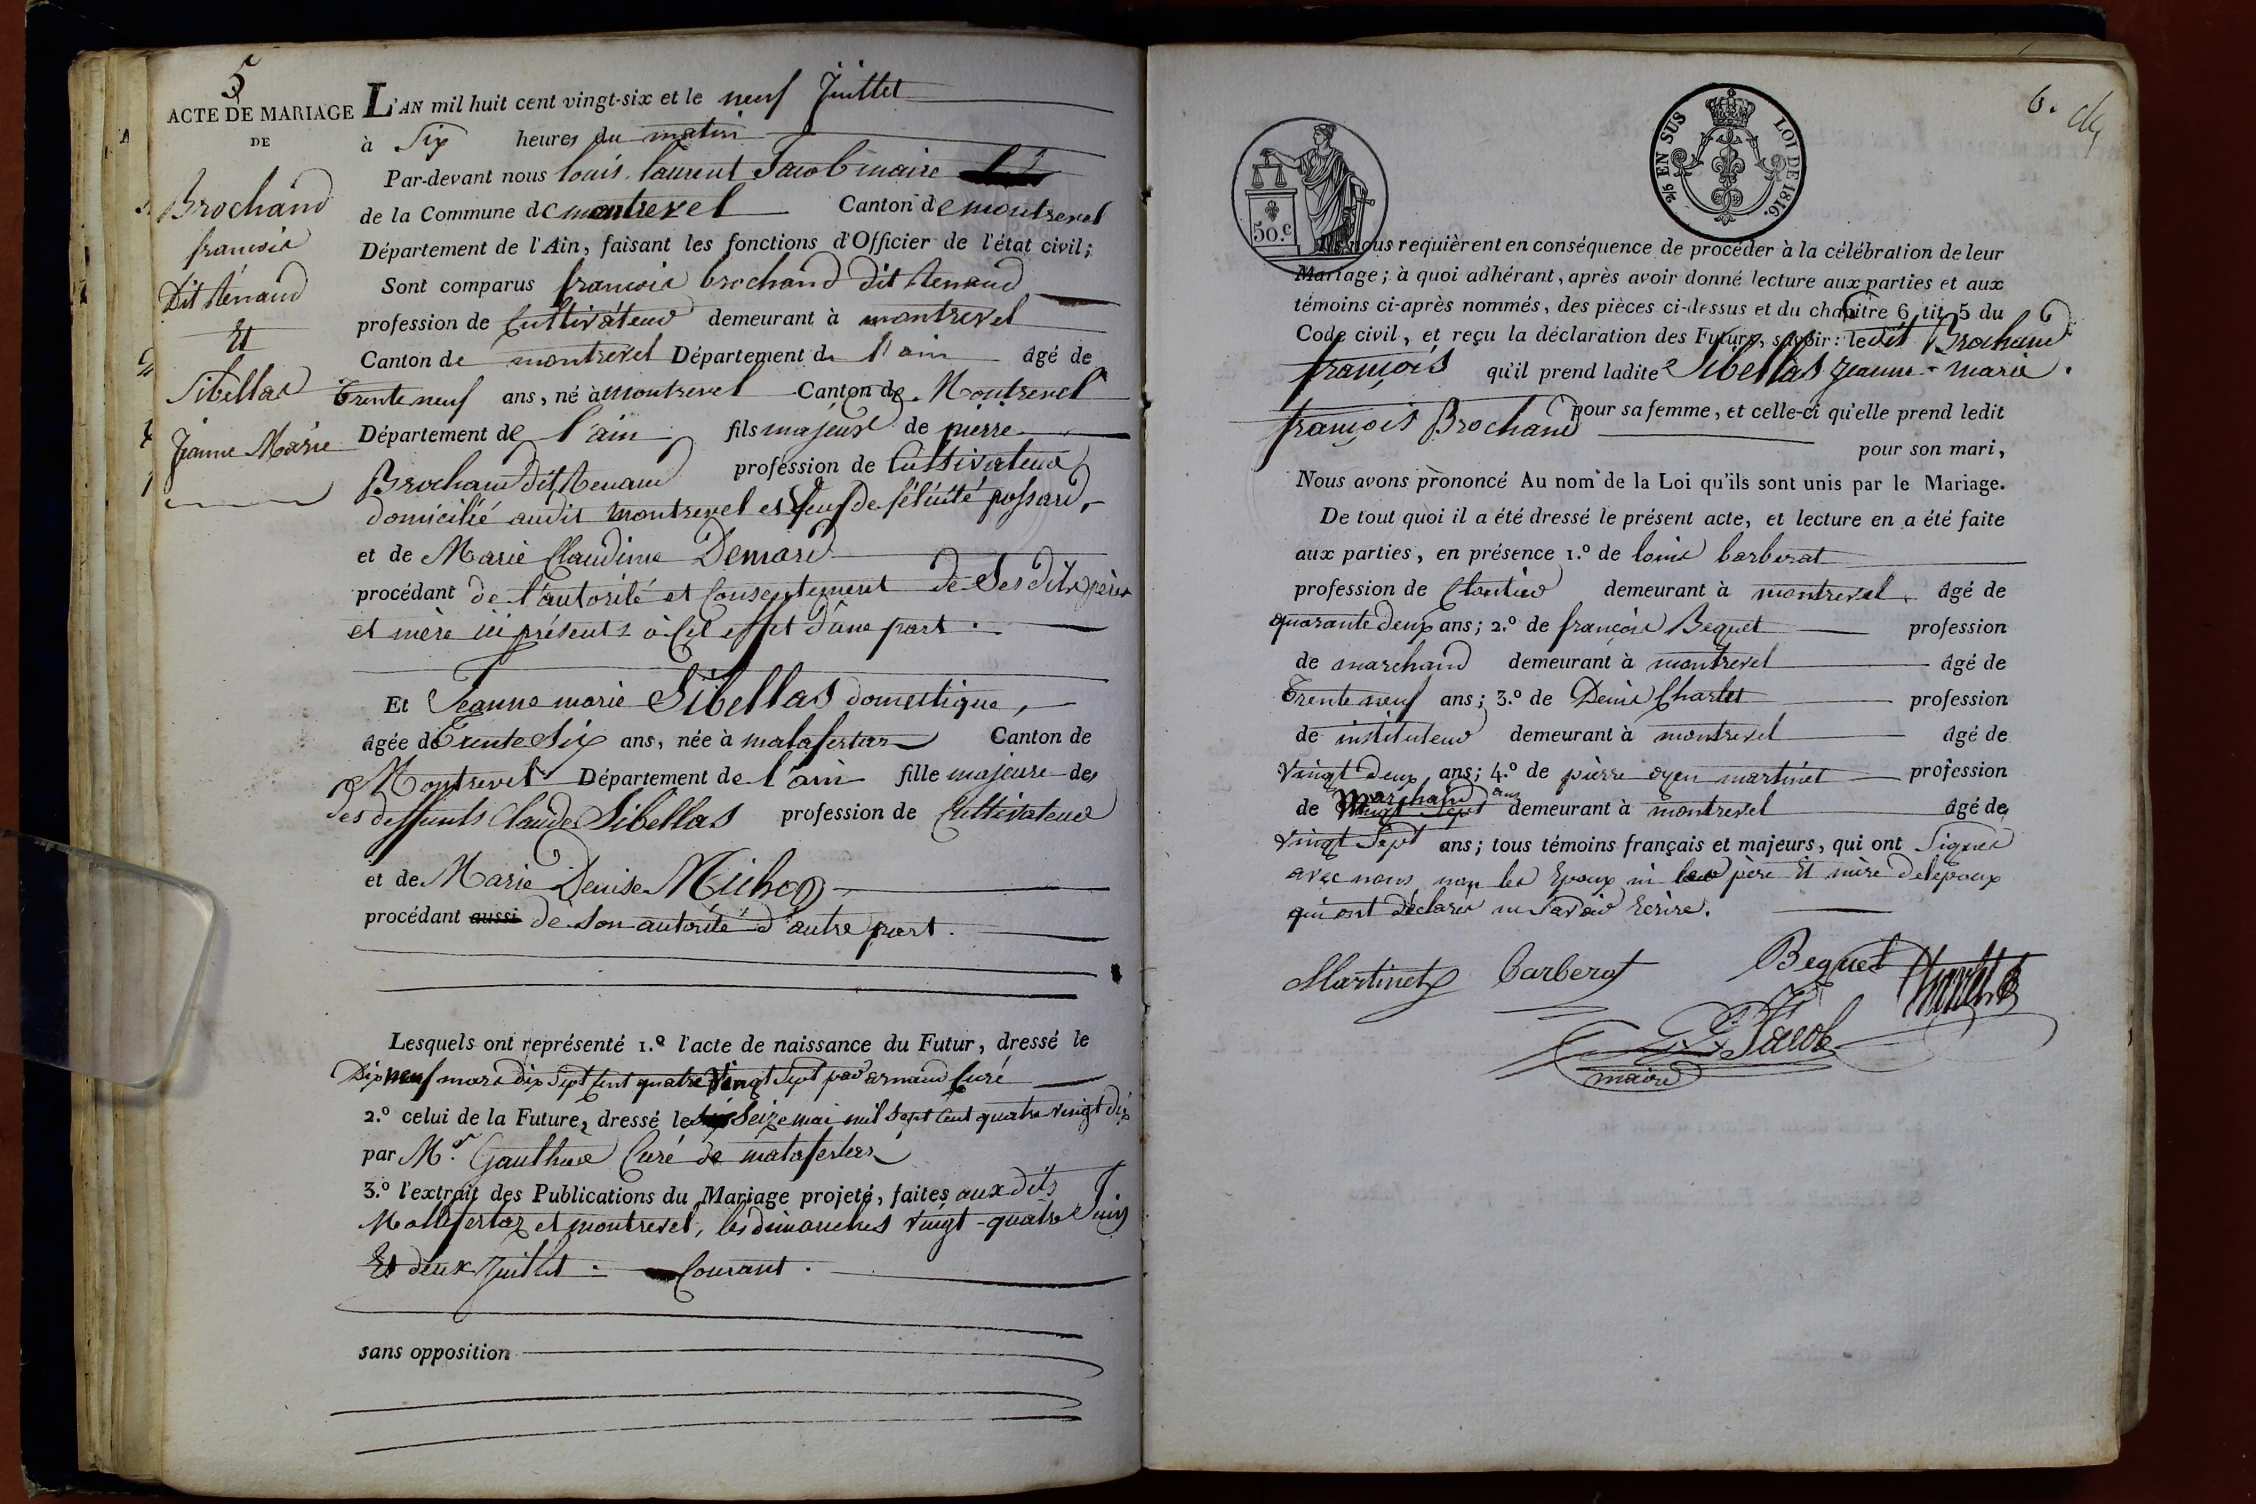 5
ACTE DE MARIAGE
DE
Brochand
francois
Dit Renaud
Et
Sibellas
Jeanne Marie
L'AN mil huit cent vingt-six et le neuf Juillet
à Six heures du matin
Par-devant nous louis laurent Jacob maire
de la Commune de montrevel Canton de montrevel
Département de l'Ain, faisant les fonctions d'Officier de l'état civil;
Sont comparus francois brochand dit Renaud
profession de Cultivateur demeurant à montrevel
Canton de montrevel Département de l'ain âgé de
Trente neuf ans, né à montrevel Canton de Montrevel
Département de l'ain fils majeur de pierre
Brochand dit Renaud profession de Cultivateur
domicilié audit montrevel et veuf de félicité possard,
et de Marie Claudine Demard
procédant de l'autorité et Consentement de Ses dits père
et mère ici présents à Cet effet d'une part.
Et Jeanne marie Sibellas domestique,
âgée de Trente Six ans, née à malafertaz Canton de
Montrevel Département de l'ain fille majeure de
des deffunts Claude Sibellas profession de Cultivateur
et de Marie Denise Michon
procédant aussi de Son autorité d'autre part.
Lesquels ont représenté 1.º l'acte de naissance du Futur, dressé le
Dix neuf mars dix Sept Cent quatre Vingt Sept par arnaud Curé
2.º celui de la Future, dressé le Seize mai mil Sept Cent quatre vingt dix
par Mr. Gauthier Curé de malafertaz
3.º l'extrait des Publications du Mariage projeté, faites aux dits
Mallafertaz et montrevel, les dimanches vingt-quatre Juin
Et deux Juillet. Courant.
sans opposition
6.
50.c
2/5 EN SUS
LOI DE 1816.
Ils nous requièrent en conséquence de procéder à la célébration de leur
Mariage; à quoi adhérant, après avoir donné lecture aux parties et aux
témoins ci-après nommés, des pièces ci-dessus et du chapitre 6 tit. 5 du
Code civil, et reçu la déclaration des Futurs, savoir: ledit Brochand
françois qu'il prend ladite Sibellas Jeanne-marie.
pour sa femme, et celle-ci qu'elle prend ledit
françois Brochand
pour son mari,
Nous avons prononcé Au nom de la Loi qu'ils sont unis par le Mariage.
De tout quoi il a été dressé le présent acte, et lecture en a été faite
aux parties, en présence 1.º de louis barberat
profession de Cloutier demeurant à montrevel âgé de
quarante deux ans; 2.º de françois Bequet profession
de marchand demeurant à montrevel âgé de
Trente neuf ans; 3.º de Denis Charlet profession
de instituteur demeurant à montrevel âgé de
Vingt Deux ans; 4.º de pierre oyen martinet profession
de marchand demeurant à montrevel âgé de
Vingt Sept ans; tous témoins français et majeurs, qui ont Signés
avec nous non les Epoux ni les père Et mère de l'epoux
qui ont Déclarés ne Savoir Ecrire.
Martinet Barberat Bequet Charlet
Jacob
maire